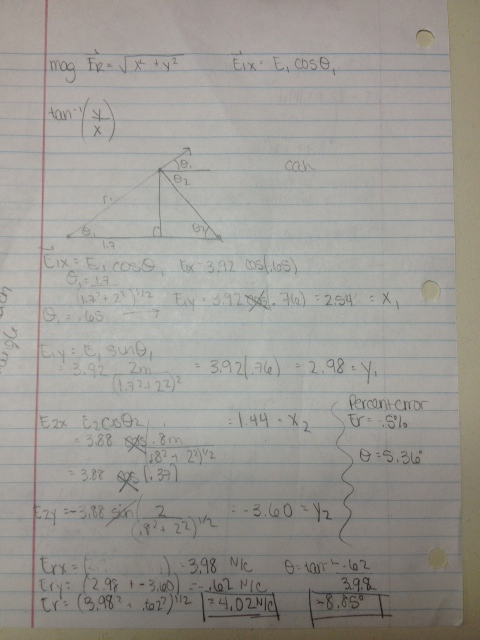 mag Er = √x² + y²    E1x = E1 cosθ1
tan⁻¹(y/x)
θ1
θ2
cah
r1
θ1
θ2
1.7
E1x = E1 cosθ1    Ex = 3.92 cos(.65)
θ1 = 1.7/(1.7² + 2²)^1/2    E1x = 3.92 cos(.76) = 2.54 = x1
θ1 = .65
E1y = E1 sinθ1
= 3.92 2m/(1.7² + 2²)² = 3.92(.76) = 2.98 = y1
E2x E2 cosθ2 = 1.44 = x2
= 3.88 cos .8m/(.8² + 2²)^1/2
= 3.88 cos (.37)
Percent error
Er = .5%
θ = 5.36°
E2y = -3.88 sin(2/(.8² + 2²)^1/2 = -3.60 = y2
Erx = ( ) = 3.98 N/C    θ = tan⁻¹ -.62/3.98
Ery = (2.98 + -3.60) = -.62 N/C
Er = (3.98² + .62²)^1/2 = 4.02 N/C    -8.85°